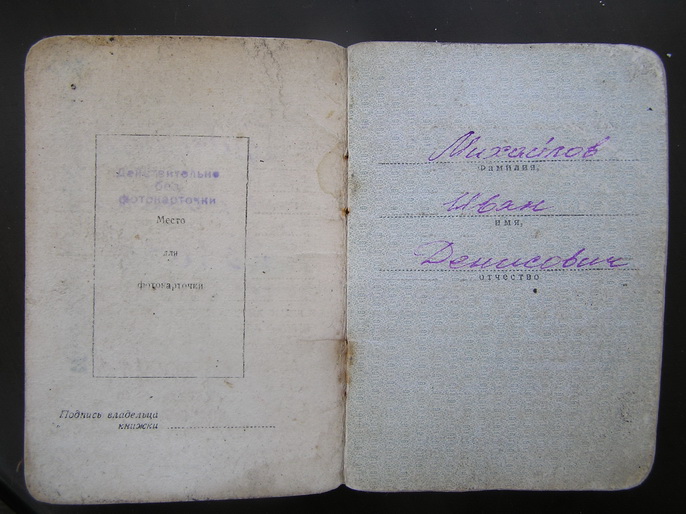 Действительно
без
фотокарточки
Место
для
фотокарточки
Подпись владельца
книжки
Михайлов
фамилия,
Иван
имя,
Денисович
отчество